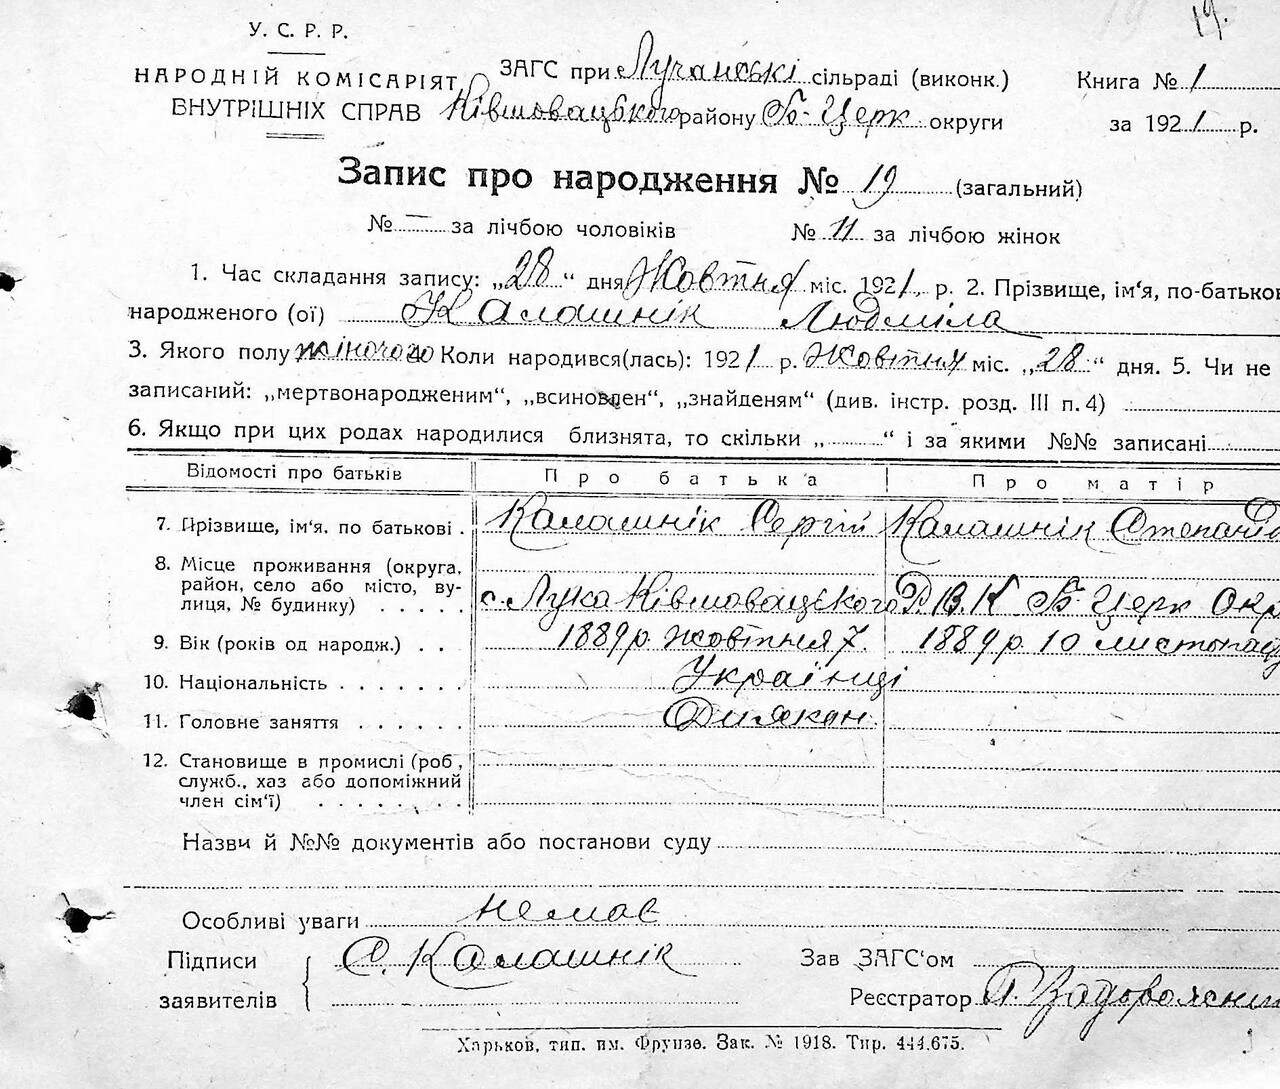 19.
У. С. Р. Р.
НАРОДНІЙ КОМІСАРІЯТ
ВНУТРІШНІХ СПРАВ
ЗАГС при Лучанські сільраді (виконк.)
Ківшовацького району Б-Церк округи
Книга № 1
за 1921 р.
Запис про народження № 19 (загальний)
№ — за лічбою чоловіків № 11 за лічбою жінок
1. Час складання запису: „28“ дня Жовтня міс. 1921 р. 2. Прізвище, ім'я, по-батькові
народженого (ої) Калашнік Людміла
3. Якого полу жіночого 4. Коли народився(лась): 1921 р. Жовтня міс. „28“ дня. 5. Чи не
записаний: „мертвонародженим“, „всиновлен“, „знайденям“ (див. інстр. розд. III п. 4)
6. Якщо при цих родах народилися близнята, то скільки „ “ і за якими №№ записані
Відомості про батьків Про батька Про матір
7. Прізвище, ім'я. по батькові . Калашнік Сергій Калашнік Степанід
8. Місце проживання (округа,
район, село або місто, ву-
лиця, № будинку) . . . . . с. Лука Ківшовацького Р.В.К Б-Церк Окр
9. Вік (років од народж.) . . 1889р. жовтня 7. 1889р. 10 листопад
10. Національність . . . . . . . Українці
11. Головне заняття . . . . . . Диякон
12. Становище в промислі (роб,
служб., хаз або допоміжний
член сім'ї) . . . . . . . .
Назви й №№ документів або постанови суду
Особливі уваги немає
Підписи С. Калашнік Зав ЗАГС'ом
заявителів Реєстратор
Харьков, тип. им. Фрунзе. Зак. № 1918. Тир. 444.675.